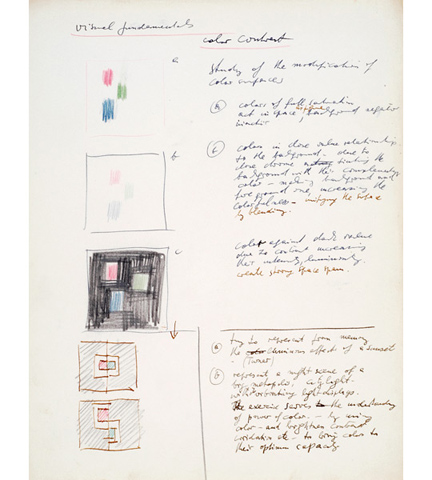 visual fundamentals
color contrast
a
Study of the modification of
color surfaces
a colors of full saturation
act in space, background negative
b
c colors in close value relationship
to the background - due to
the background with their complementary
color - making background and
increasing the
colorfulness - unifying the surface
by blending.
c
color against dark value
due to contrast increasing
their intensity, luminosity.
create strong space span.
a try to represent from memory
the luminous effects of a sunset
- (Turner)
b represent a night scene of a
big metropolis, city light -
with vibrating light displays.
The exercise serves the understanding
of power of color - by using
color - and brightness contrast
correlation etc - to bring color to
their optimum capacity